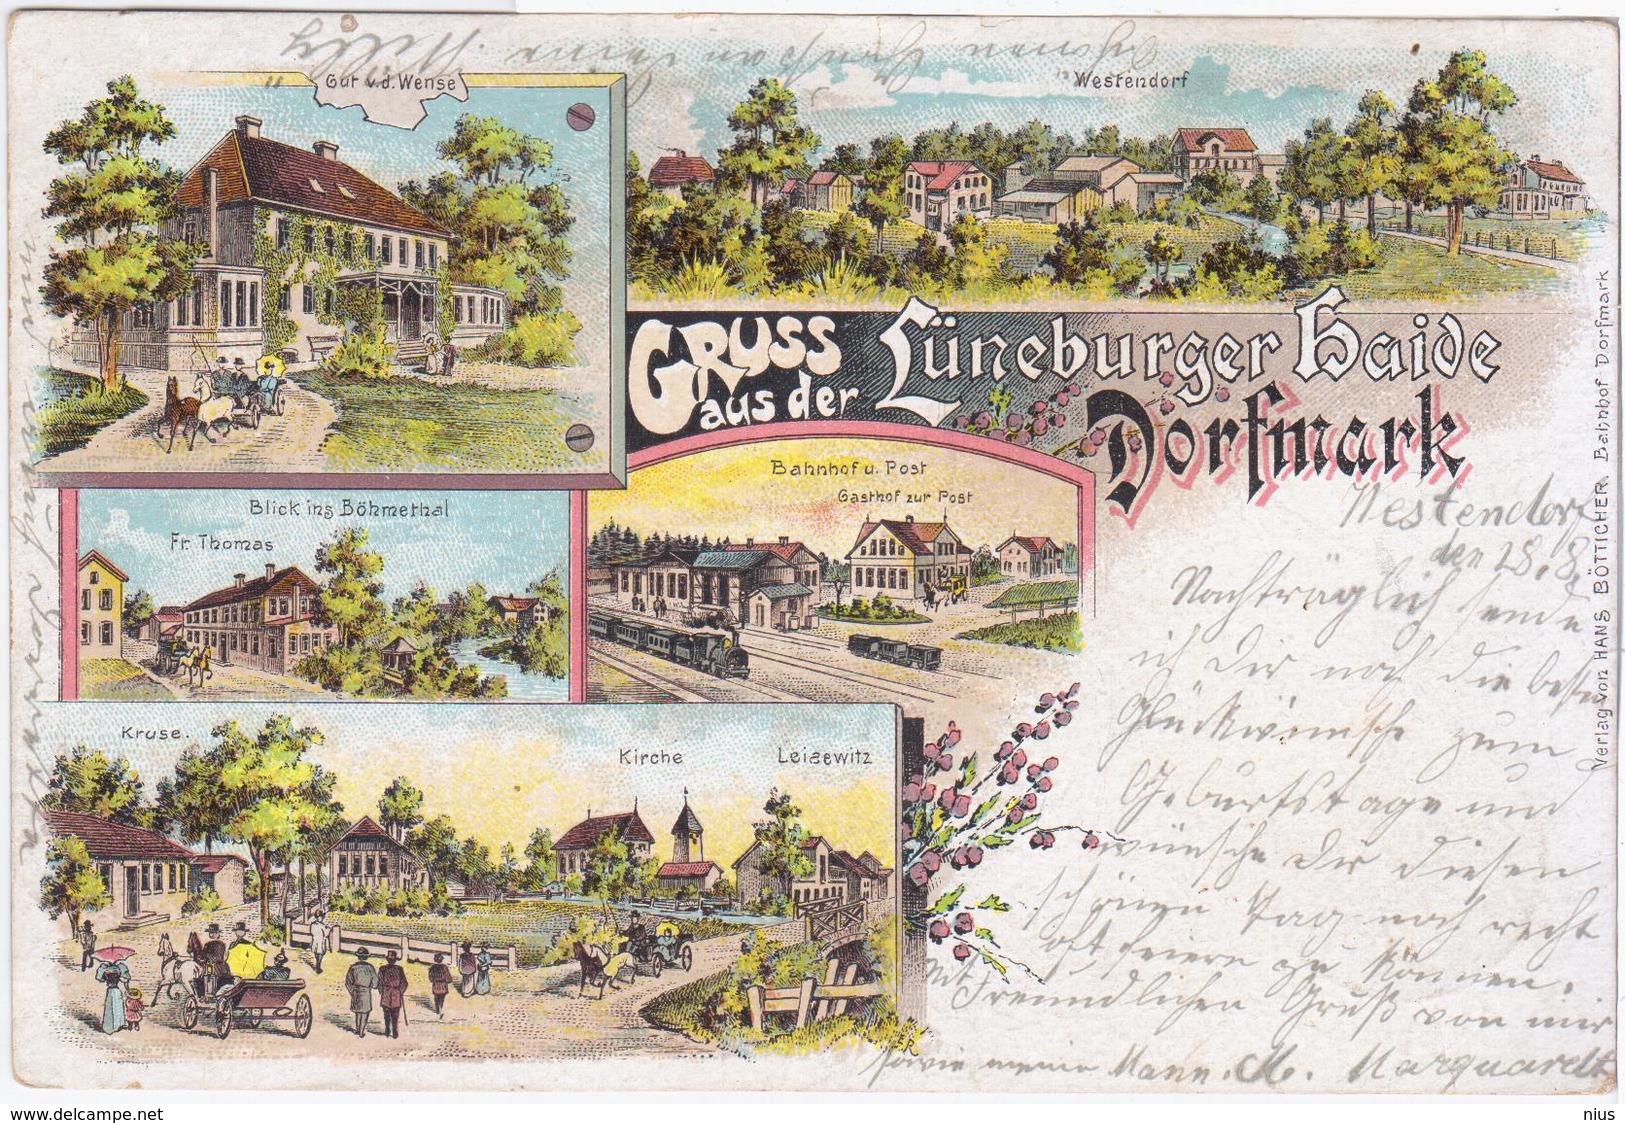 Gut v.d. Wense
Westendorf
Gruss
aus der
Lüneburger Haide
Dorfmark
Blick ins Böhmethal
Fr. Thomas
Bahnhof u. Post
Gasthof zur Post
Kruse.
Kirche
Leisewitz
Verlag von HANS BÖTTICHER. Bahnhof Dorfmark
Westendorf
den 28.8.
Nachträglich sende
ich Dir noch die besten
Glückwünsche zum
Geburtstage und
wünsche Dir diesen
schönen Tag noch recht
oft feiern zu können.
Mit Freundlichen Gruß von mir
sowie meine Mann. M. Marquardt
delcampe.net
nius